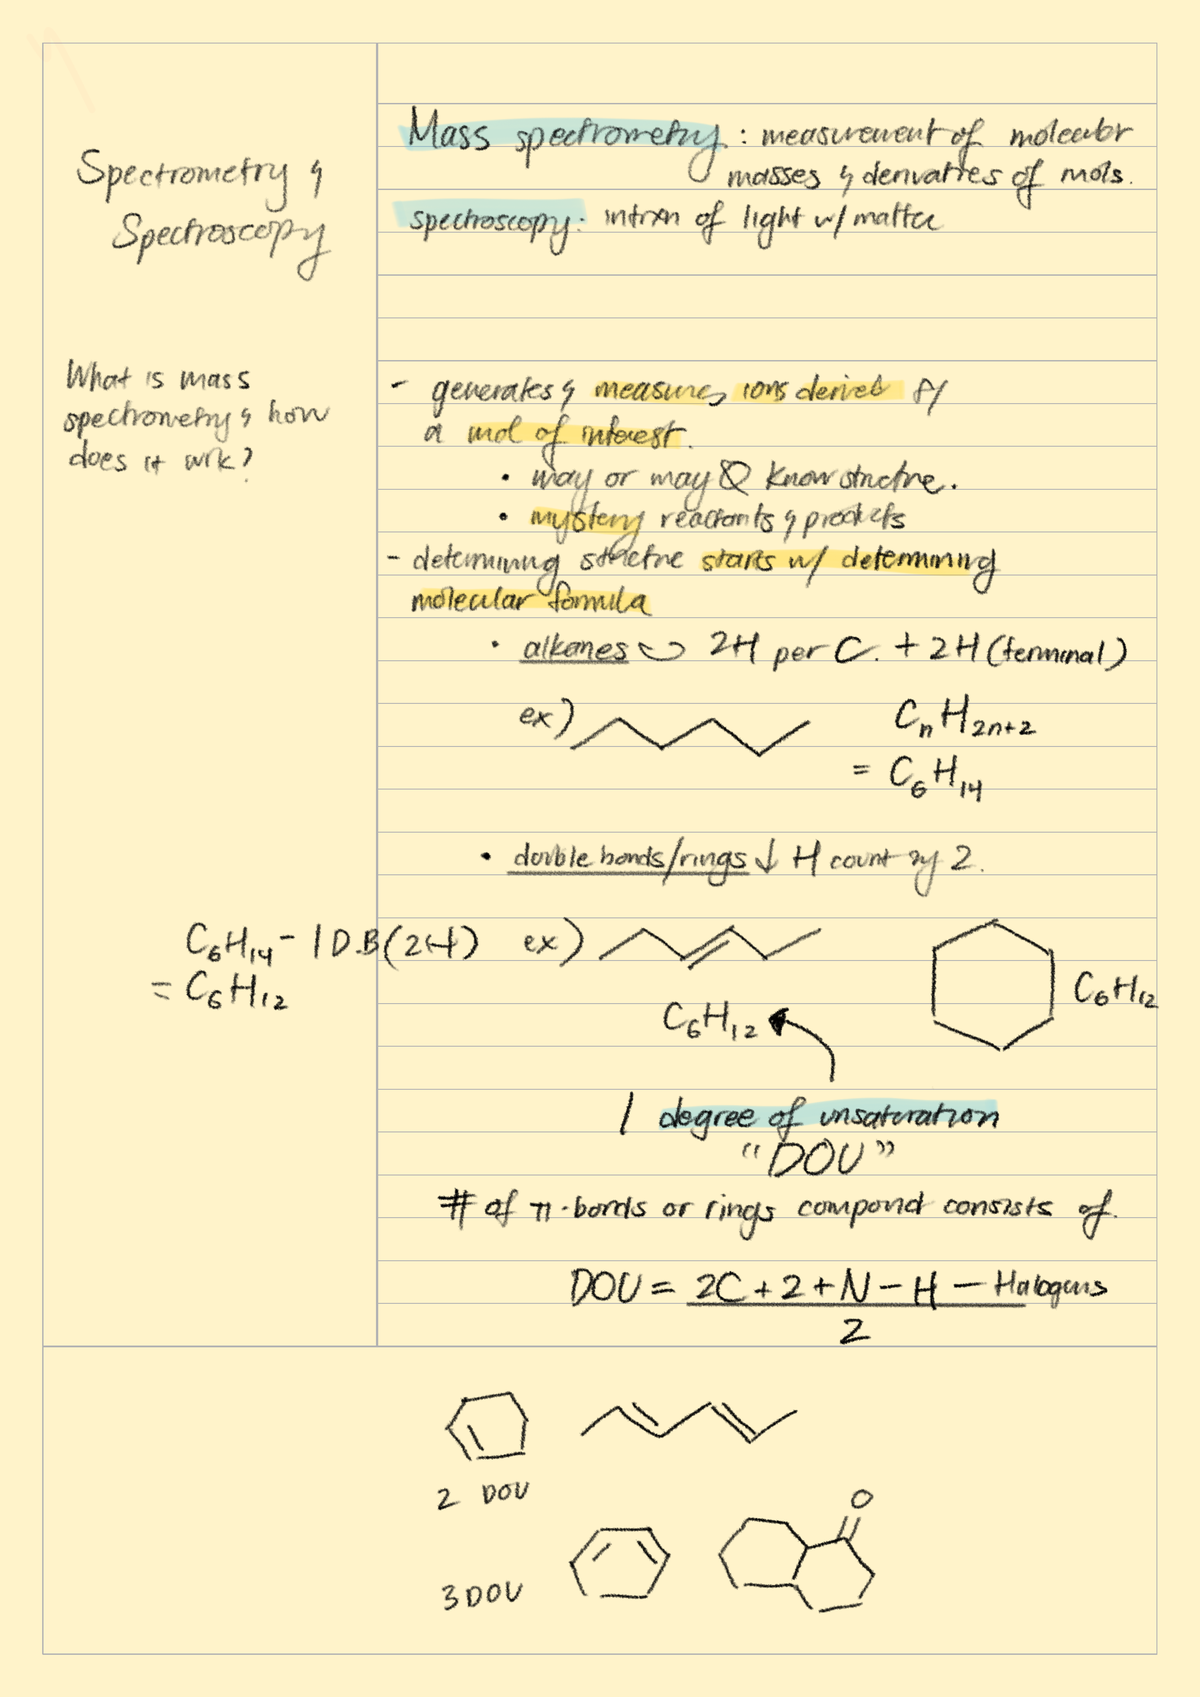 Spectrometry &
Spectroscopy
Mass spectrometry : measurement of molecular
masses & derivatives of mols.
spectroscopy : intrxn of light w/ matter
What is mass
spectrometry & how
does it wrk?
- generates & measures ions derived f/
a mol of interest.
• may or may Know structure.
• mystery reactants & products
- determining structure starts w/ determining
molecular formula
• alkanes 2H per C. + 2H (terminal)
ex)
CnH2n+2
= C6H14
• double bonds/rings ↓ H count by 2.
C6H14 - 1 D.B (2H)
= C6H12
ex)
C6H12
C6H12
1 degree of unsaturation
"DOU"
# of π-bonds or rings compond consists of.
DOU = 2C + 2 + N - H - Halogens
2
2 DOU
O
3 DOU